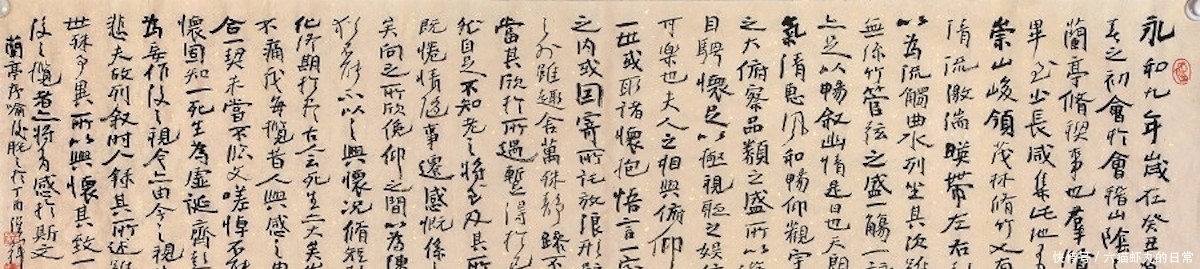 永和九年歲在癸丑
春之初會於會稽山陰
蘭亭脩禊事也羣賢
畢至少長咸集此地有
崇山峻領茂林脩竹又有
清流激湍暎帶左右
以為流觴曲水列坐其次雖
無絲竹管弦之盛一觴一
上足以暢敘幽情是日也天朗
氣清惠風和暢仰觀宇
之大俯察品類之盛所以
目騁懷足以極視聽之娛信
可樂也夫人之相與俯仰
一世或取諸懷抱悟言一室
之內或因寄所託放浪形骸
之外雖趣舍萬殊靜躁不
當其欣於所遇暫得於己
然自足不知老之將至及其所
既惓情隨事遷感慨係
矣向之所欣俛仰之間以為陳
猶不能不以之興懷況脩短
化終期於盡古人云死生亦大矣豈
不痛哉每覽昔人興感之由
合一契未嘗不臨文嗟悼不能
懷固知一死生為虛誕齊彭
為妄作後之視今亦由今之視
悲夫故列敘時人錄其所述雖
世殊事異所以興懷其致一
後之攬者亦將有感於斯文
蘭亭序於丁酉
快传号／六猫虾丸的日常